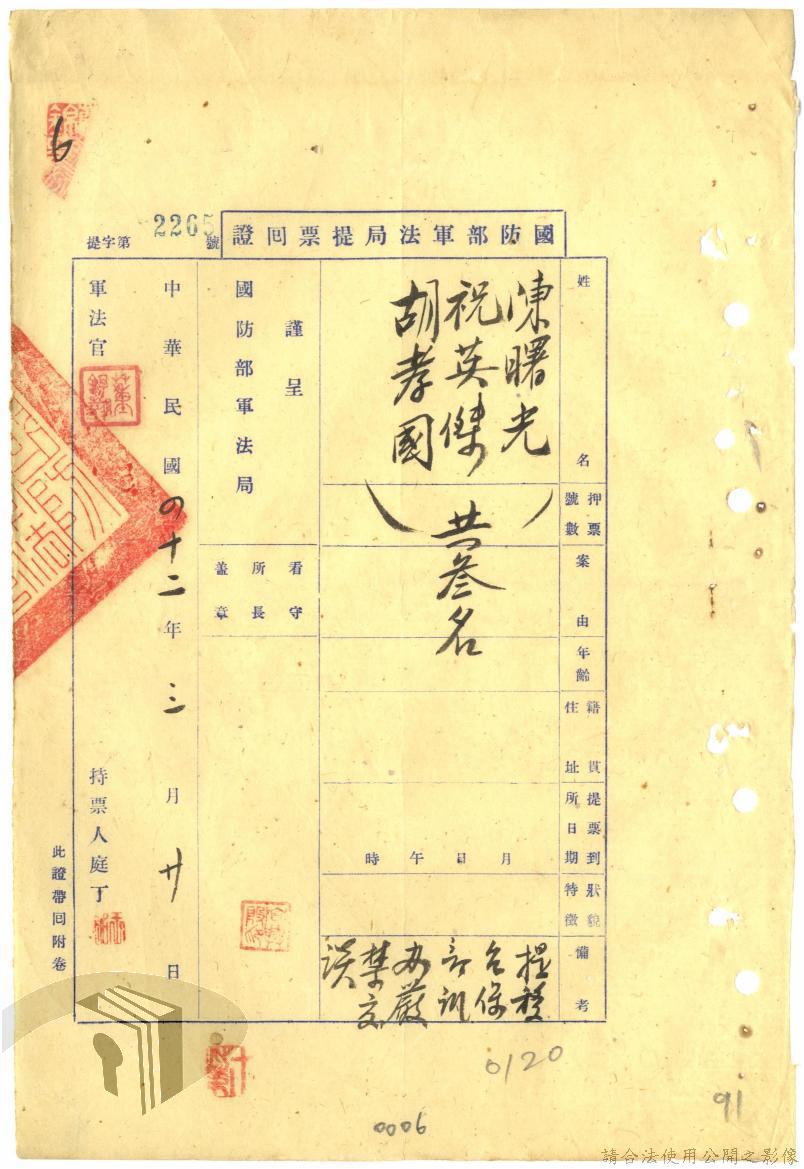 6
國防部軍法局提票回證
提字第2265號
姓名
陳曙光
祝英傑
胡孝國
共叁名
押票號數
案由
年齡
籍貫住址
提票到所日期
月 日 午 時
狀貌特徵
備考
提移
台保
訓
嚴
禁交
談
謹呈
國防部軍法局
看守所長蓋章
中華民國四十二年三月廿日
軍法官
持票人庭丁
此證帶回附卷
0120
0006
91
請合法使用公開之影像